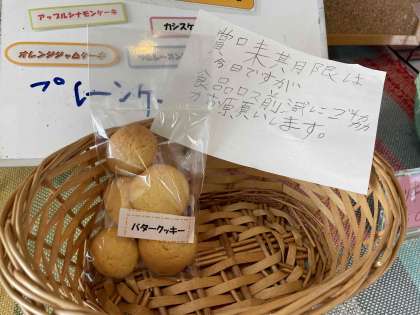 アップルシナモンケーキ
カシスケ
オレンジジャマロケーキ
プレーンケ
賞口未其月限は
今日ですが
食品ロス削減にご協力
お願いします。
バタークッキー